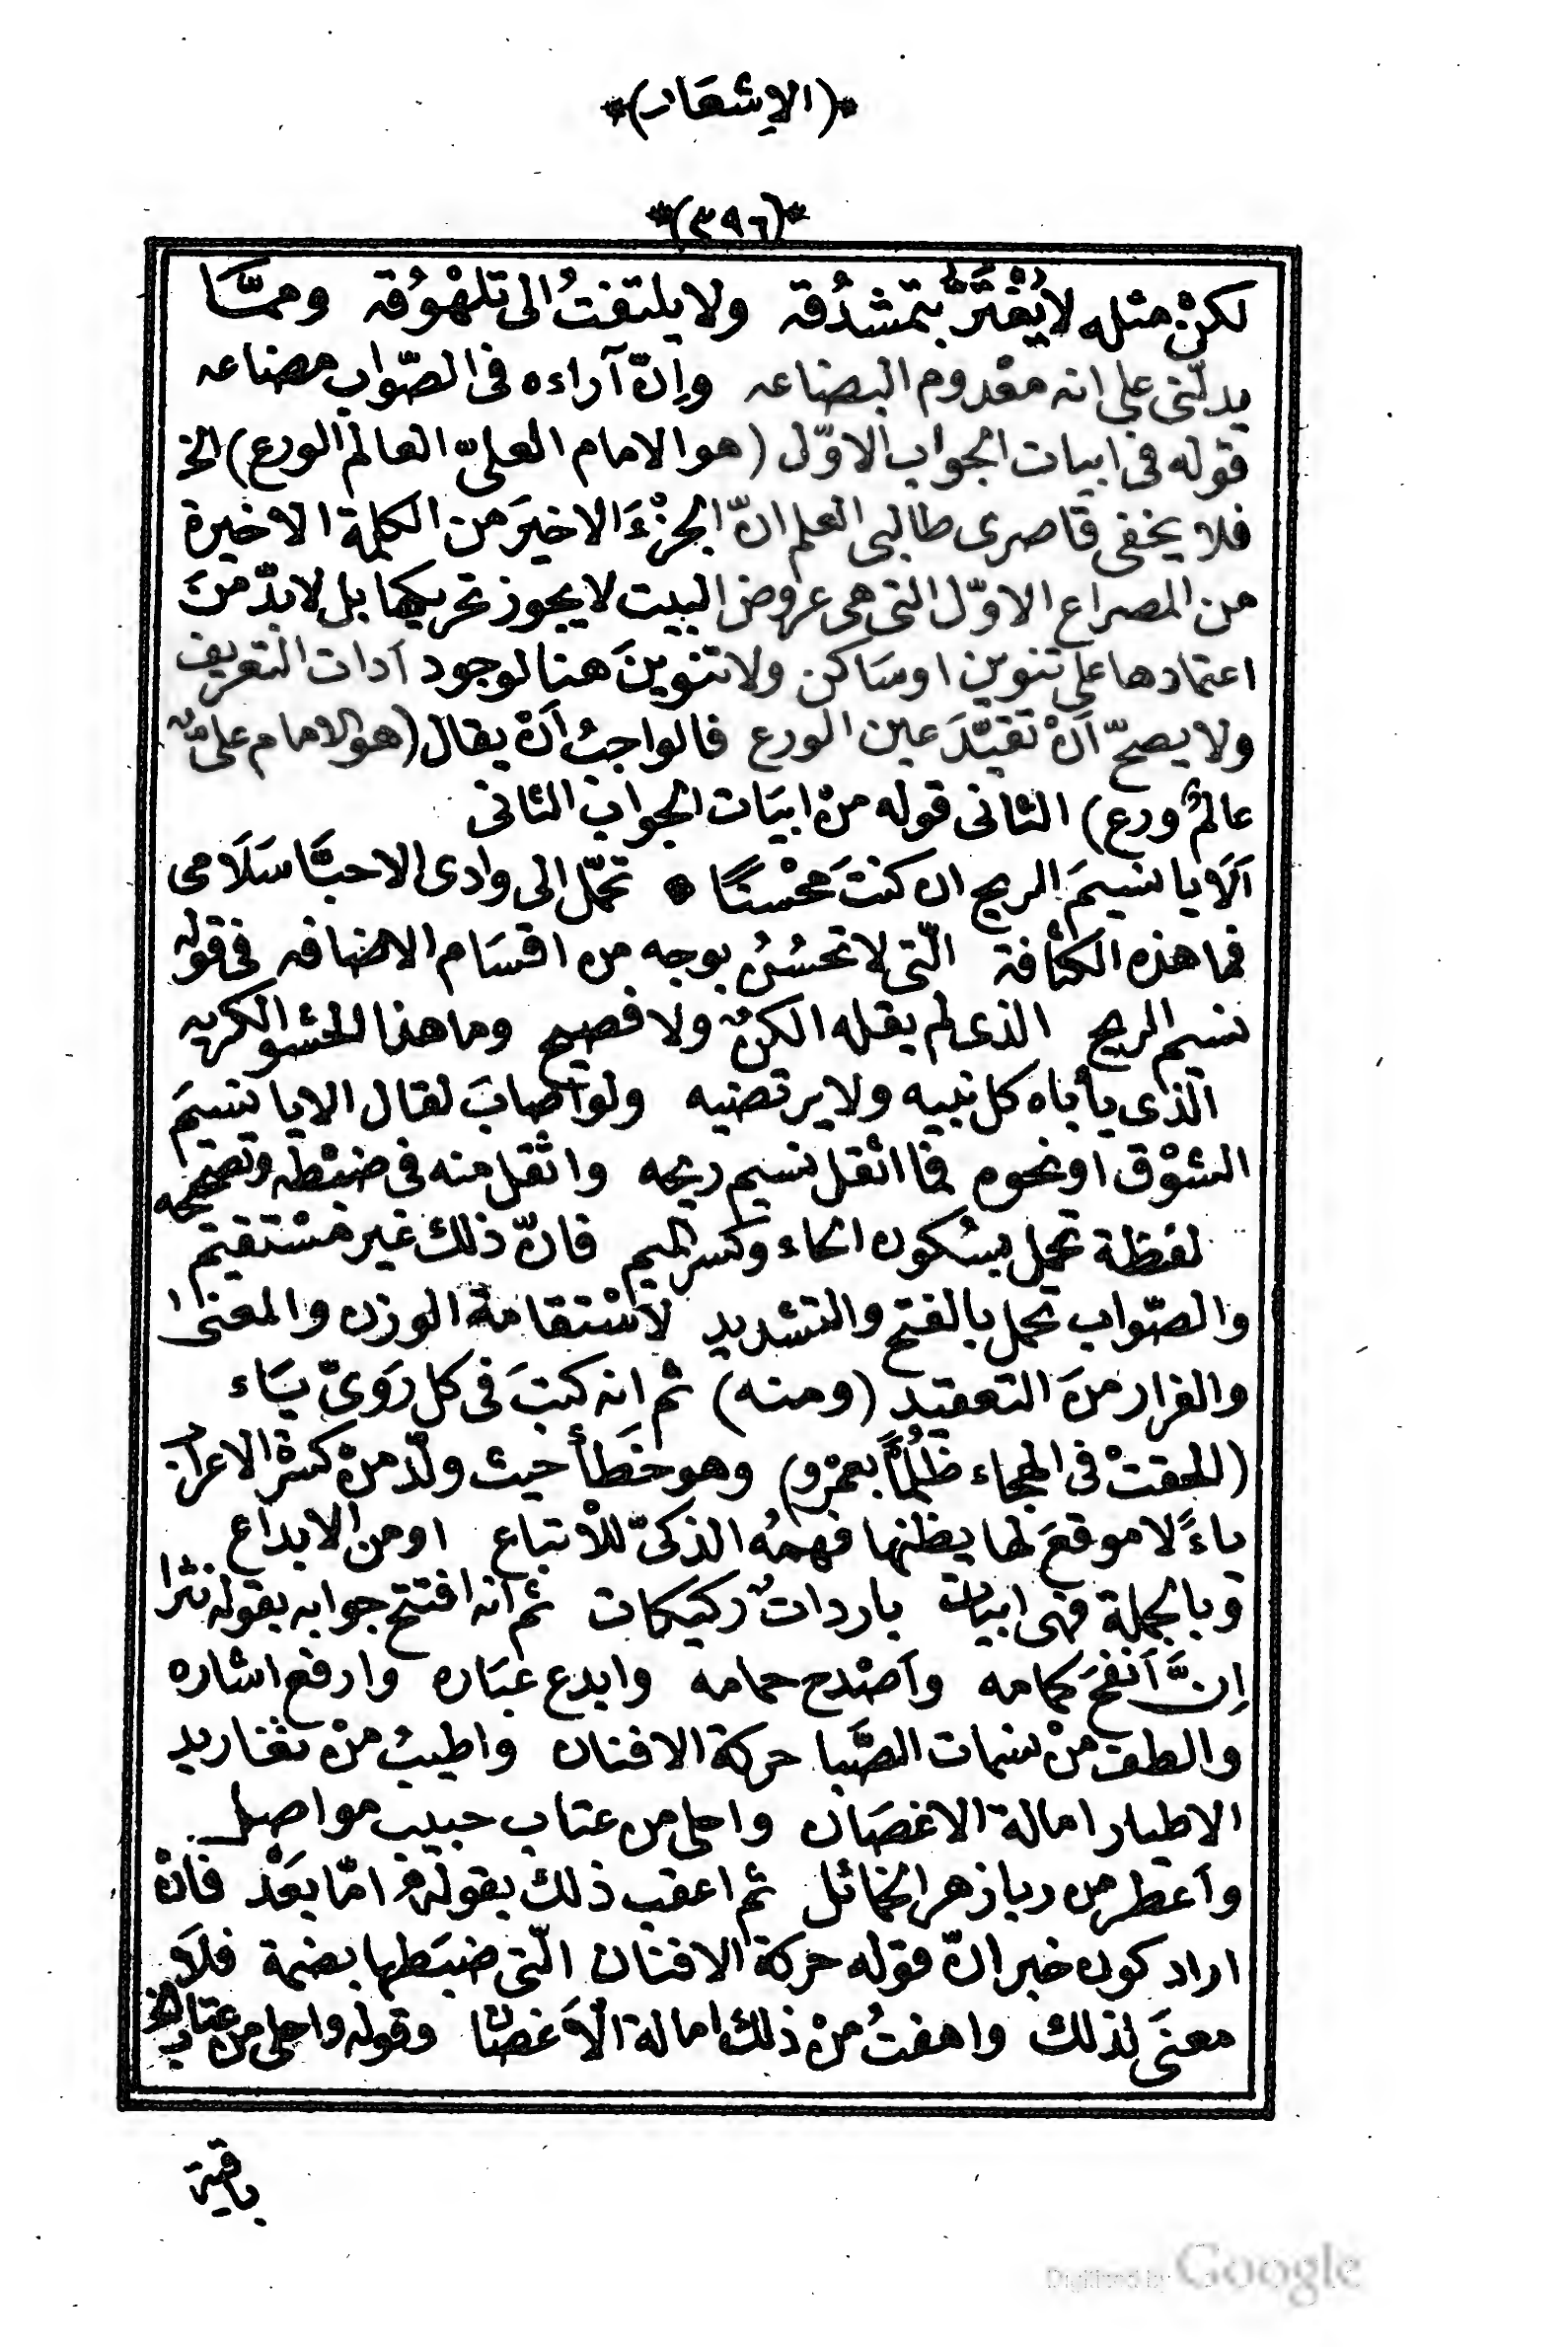 *(الاِشعَار)*
*(٣٩٦)*
لكنْ مثله لا يُغْتَرُّ بتمشدُقه ولا يلتفتُ الى تلهْوُقه وممَّا
يدلّنى على انه معْدوم البضاعه واِنّ آراءه فى الصّواب مضاعه
قوله فى ابيات الجواب الاوّل (هو الامام العلىّ العالم الورع) الخ
فلا يخفى قاصرى طالبى العلم انّ الجزْءَ الاخيَر من الكلمة الاخيرة
من المصراع الاوّل التى هى عروض البيت لا يجوز تحريكها بل لابدّ منَ
اعتمادها على تنوين اوسَاكن ولا تنوينَ هنا لوجود اَدات التعريف
ولا يصحّ اَنْ تقيّدَ عين الورع فالواجبُ اَنْ يقال (هو الامام علىٌّ
عالمٌ ورع) الثانى قوله منْ ابيَات الجواب الثانى
اَلَا يا نسيمَ الريح ان كنتَ محْسنًا * تحمّل الى وادى الاحبَّا سَلَامى
فما هذه الكثافة الّتى لا تحسُنُ بوجه من اقسَام الاضافه فى قوله
نسيم الريح الذى لم يقله الكنٌ ولا فصيح وما هذا الحشو الكريه
الّذى يأباه كل نبيه ولا يرتضيه ولو اَصابَ لقال الا يا نسيمَ
الشوْق او نحوه فما اثقل نسيم ريحه واثقل منه فى ضبْطه وتصْحيحه
لفظة تحمل بسُكون الحاء وكسر الميم فانّ ذلك غير مسْتقيم
والصّواب تحمل بالفتح والتشديد لاسْتقامة الوزن والمعنى
والفرار منَ التعقيد (ومنه) ثم انه كتبَ فى كل رَوىّ بيَاء
(للحقتْ فى الهجاء ظلْمًا بعمْرو) وهو خَطأ حيث ولّد منْ كسْرة الاعراب
ياءً لا موقعَ لها يظنها فهمُه الذكىّ للاْتباع او من الابداع
وبالجملة فهى ابياتٌ باردات ركيكات ثم انه افتتح جوابه بقوله نثرا
اِنَّ اَنفحَ كمامه واَصْدح حمامه وابدع عبَاره وارفع اشاره
والطف منْ نسمات الصَّبا حركة الافنان واطيبُ منْ تغاريد
الاطيار امالة الاغصَان واحلى من عتاب حبيب مواصل
واَعطر من ريا زهر الخمائل ثم اعقب ذلك بقوله امّا بعَدْ فانْ
اراد كون خبر انّ قوله حركة الافنان الّتى ضبَطها بضمة فلَا
معنَى لذلك واهفتُ منْ ذلك امالة الْاَغصَان وقوله واحلى من عتاب الخ
باقية
Digitized by Google